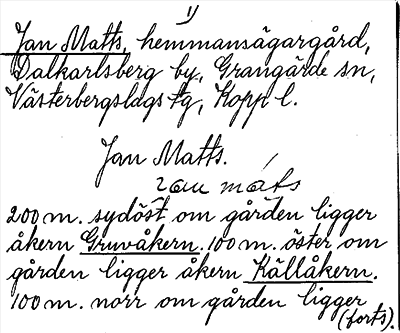 1)
Jan Matts, hemmansägargård,
Dalkarlsberg by, Grangärde sn,
Västerbergslags tg, Kopp l.
Jan Matts.
200 m. sydöst om gården ligger
åkern Gruvåkern. 100 m. öster om
gården ligger åkern Källåkern.
100 m. norr om gården ligger
(forts).